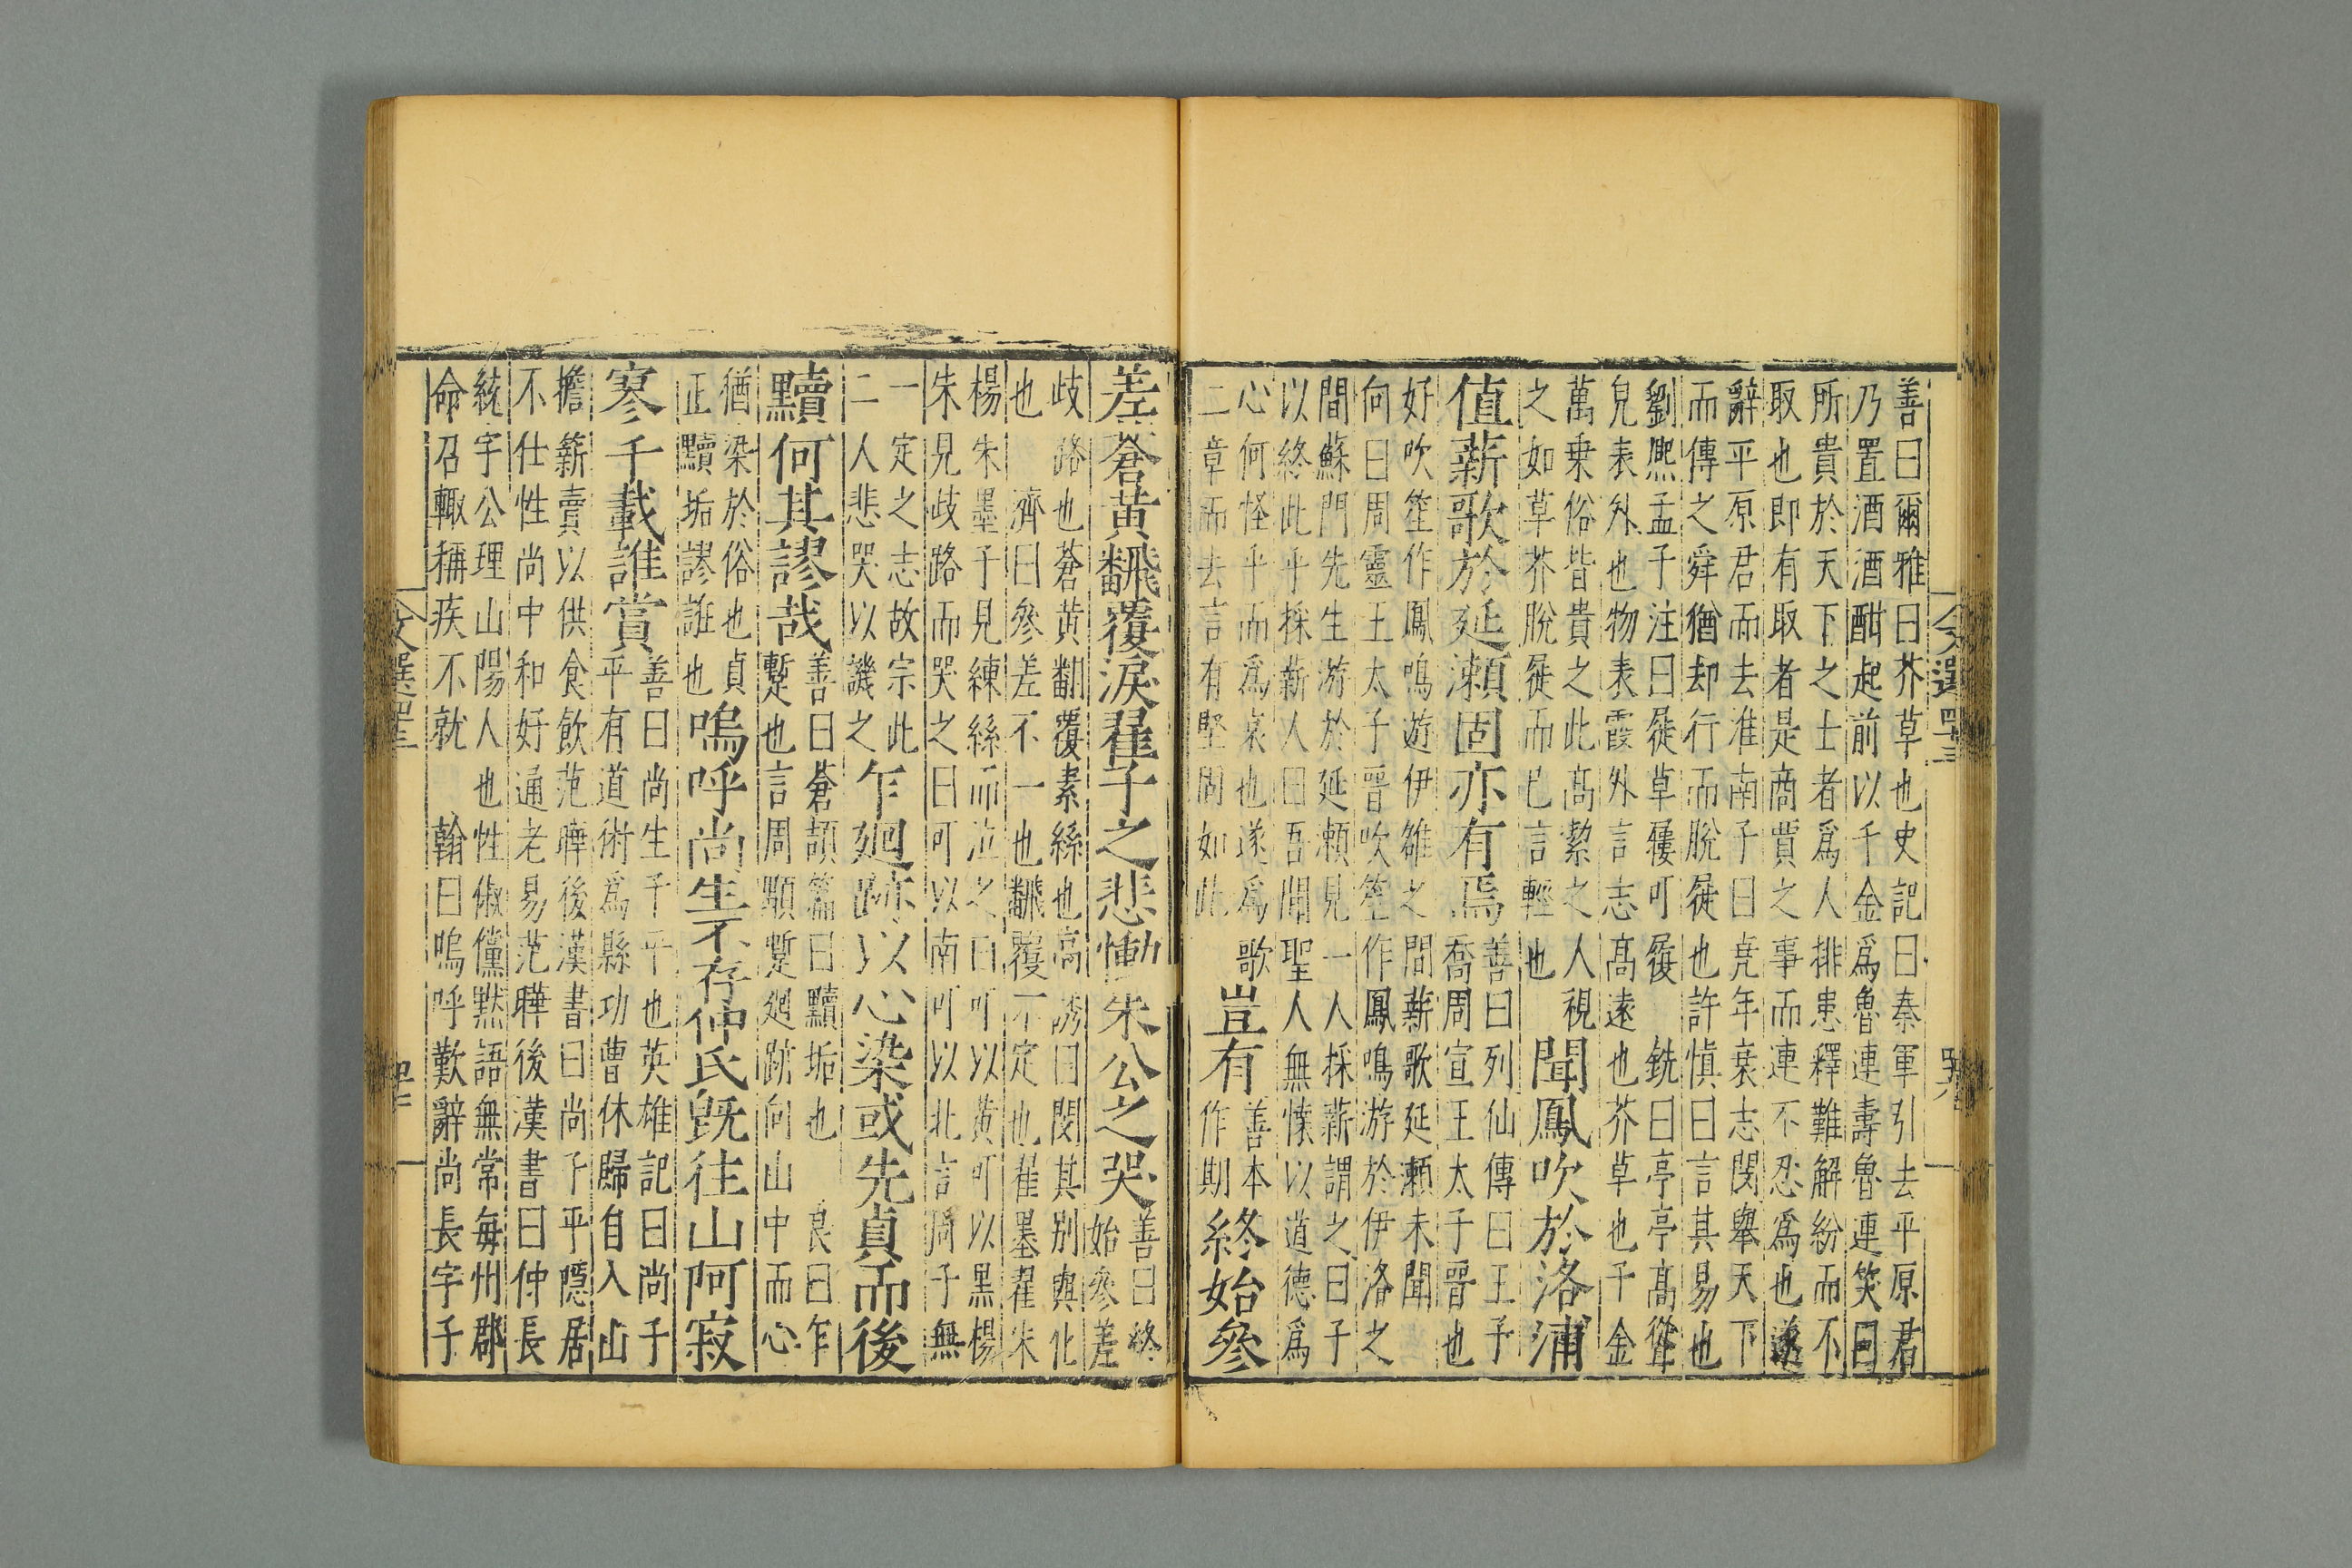 善曰爾雅曰芥草也史記曰秦軍引去平原君
乃置酒酒酣起前以千金爲魯連壽魯連笑曰
所貴於天下之士者爲人排患釋難解紛而不
取也即有取者是商賈之事而連不忍爲也遂
辭平原君而去淮南子曰堯年衰志閔舉天下
而傳之舜猶却行而脫屣也許慎曰言其易也
劉熈孟子注曰屣草屨可履 銑曰亭亭高聳
皃表外也物表霞外言志高遠也芥草也千金
萬乗俗皆貴之此高絜之人視
之如草芥脫屣而已言輕也
聞鳳吹於洛浦
值薪歌於延瀬固亦有焉
善曰列仙傳曰王子
喬周宣王太子晉也
好吹笙作鳳鳴遊伊雒之間薪歌延瀬未聞
向曰周靈王太子晉吹笙作鳳鳴游於伊洛之
間蘇門先生游於延頼見一人採薪謂之曰子
以終此乎採薪人曰吾聞聖人無懐以道德爲
心何怪乎而爲哀也遂爲歌
二章而去言有堅固如此
豈有
善本
作期
終始參
文選四十三
差蒼黃飜覆淚翟子之悲慟朱公之哭
善曰終
始參差
歧路也蒼黃翻覆素絲也高誘曰閔其別與化
也 濟曰參差不一也飜覆不定也翟墨翟朱
楊朱墨子見練絲而泣之曰可以黃可以黑楊
朱見歧路而哭之曰可以南可以北言周子無
一定之志故宗此
二人悲哭以譏之
乍廻跡以心染或先貞而後
黷何其謬哉
善曰蒼頡篇曰黷垢也 良曰乍
蹔也言周顒蹔廻跡向山中而心
猶染於俗也貞
正黷垢謬誑也
嗚呼尚生不存仲氏旣往山阿寂
寥千載誰賞
善曰尚生子平也英雄記曰尚子
平有道術爲縣功曹休歸自入山
擔薪賣以供食飲范曄後漢書曰尚子平隱居
不仕性尚中和好通老易范曄後漢書曰仲長
統字公理山陽人也性俶儻黙語無常每州郡
命召輙稱疾不就 翰曰嗚呼歎辭尚長字子